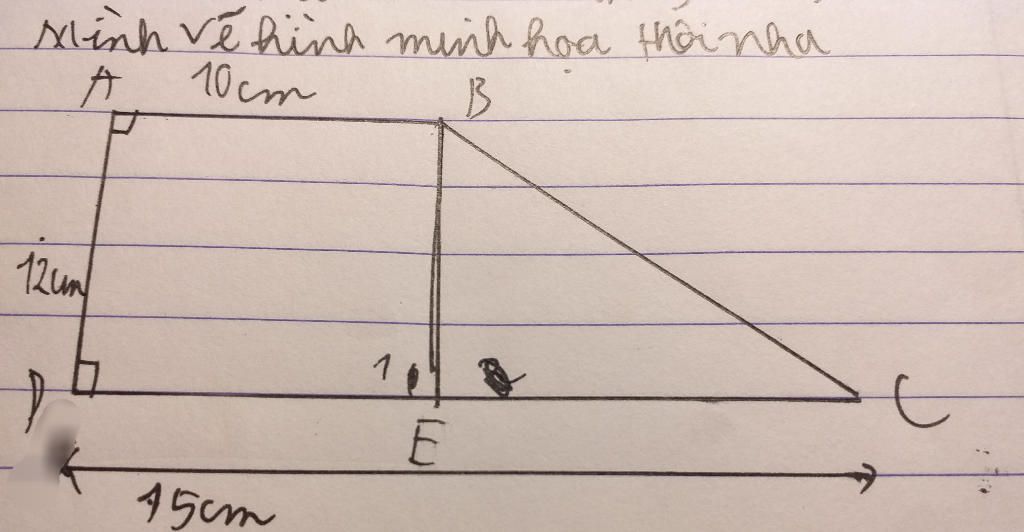 Mình vẽ hình minh họa thôi nha
A 10cm B
12cm
1
D E C
15cm